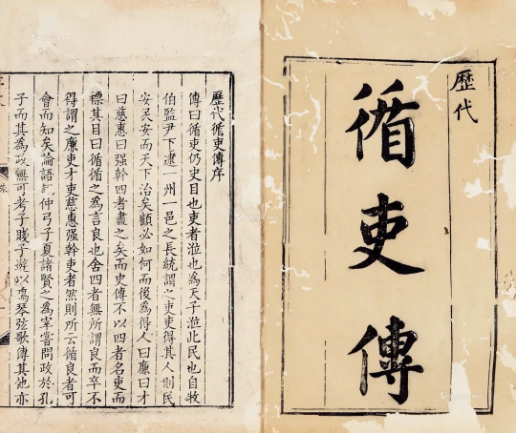 歷代
循吏傳
歷代循吏傳序
傳曰循吏仍史目也吏者涖也為天子涖此民也自牧
伯監尹下逮一州一邑之長統謂之吏吏得其人則民
安民安而天下治矣顧必如何而後為得人曰廉曰才
曰慈惠曰强幹四者盡之矣而史傳不以四者名吏而
標其目曰循循之為言良也舍四者無所謂良而卒不
得謂之廉吏才吏慈惠强幹吏者然則所云循良者可
會而知矣論語記仲弓子夏諸賢之為宰嘗問政於孔
子而其為政無可考子賤子游以鳴琴弦歌傳其他亦